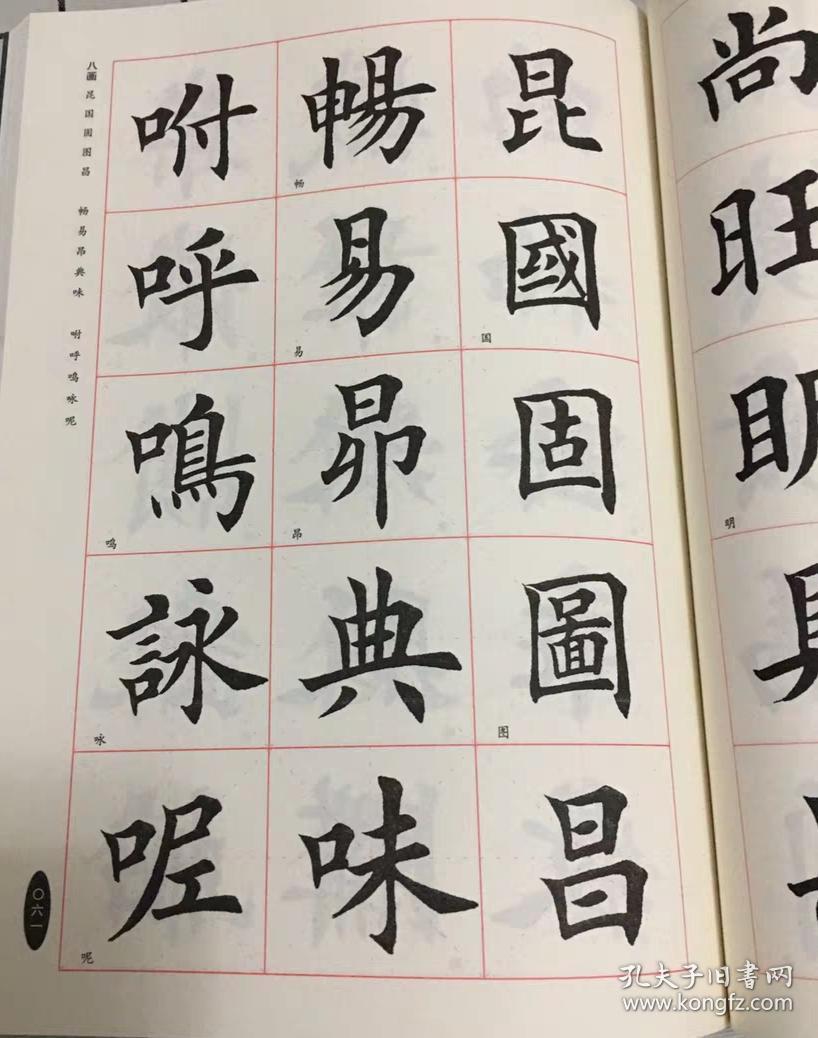 尚
旺
明
明
具
昆
國
国
固
圖
图
昌
暢
畅
易
易
昂
昂
典
味
咐
呼
鳴
鸣
詠
咏
呢
呢
八画 昆国固图昌 畅易昂典味 咐呼鸣咏呢
〇六一
孔夫子旧書网
www.kongfz.com